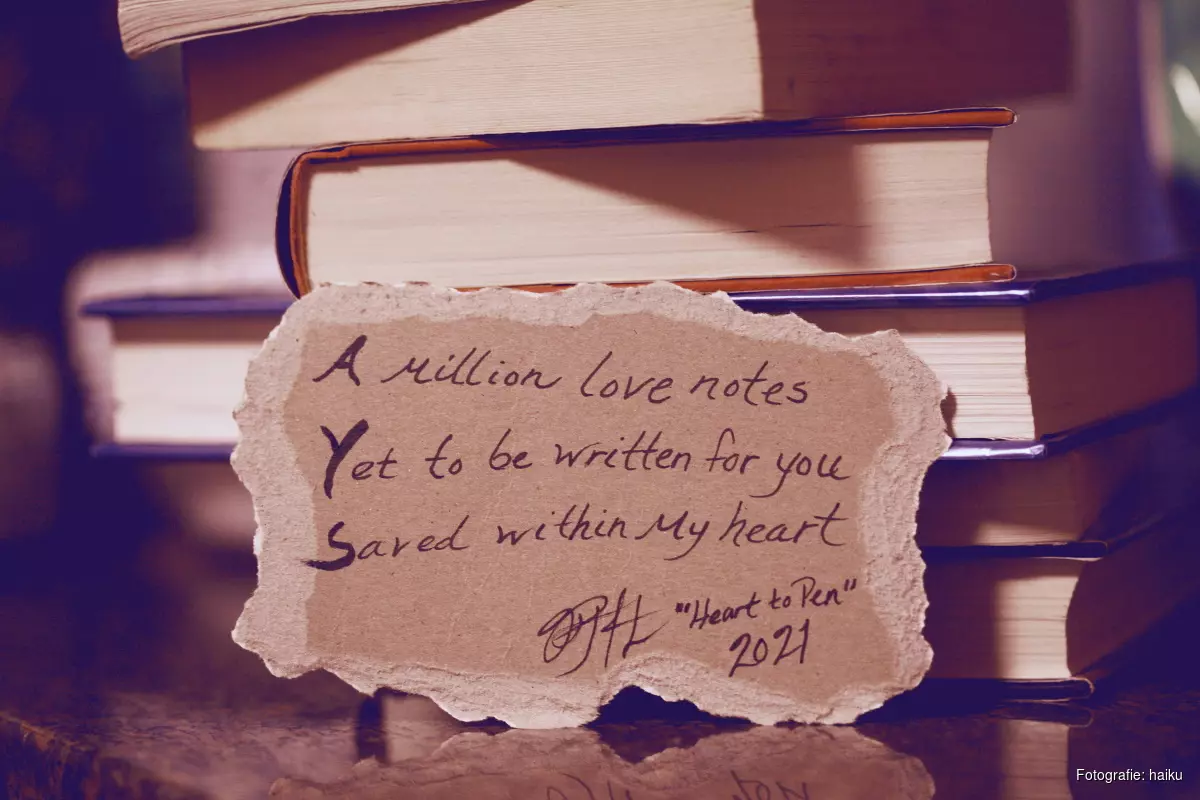 A Million love notes
Yet to be written for you
Saved within My heart
"Heart to Pen"
2021
Fotografie: haiku